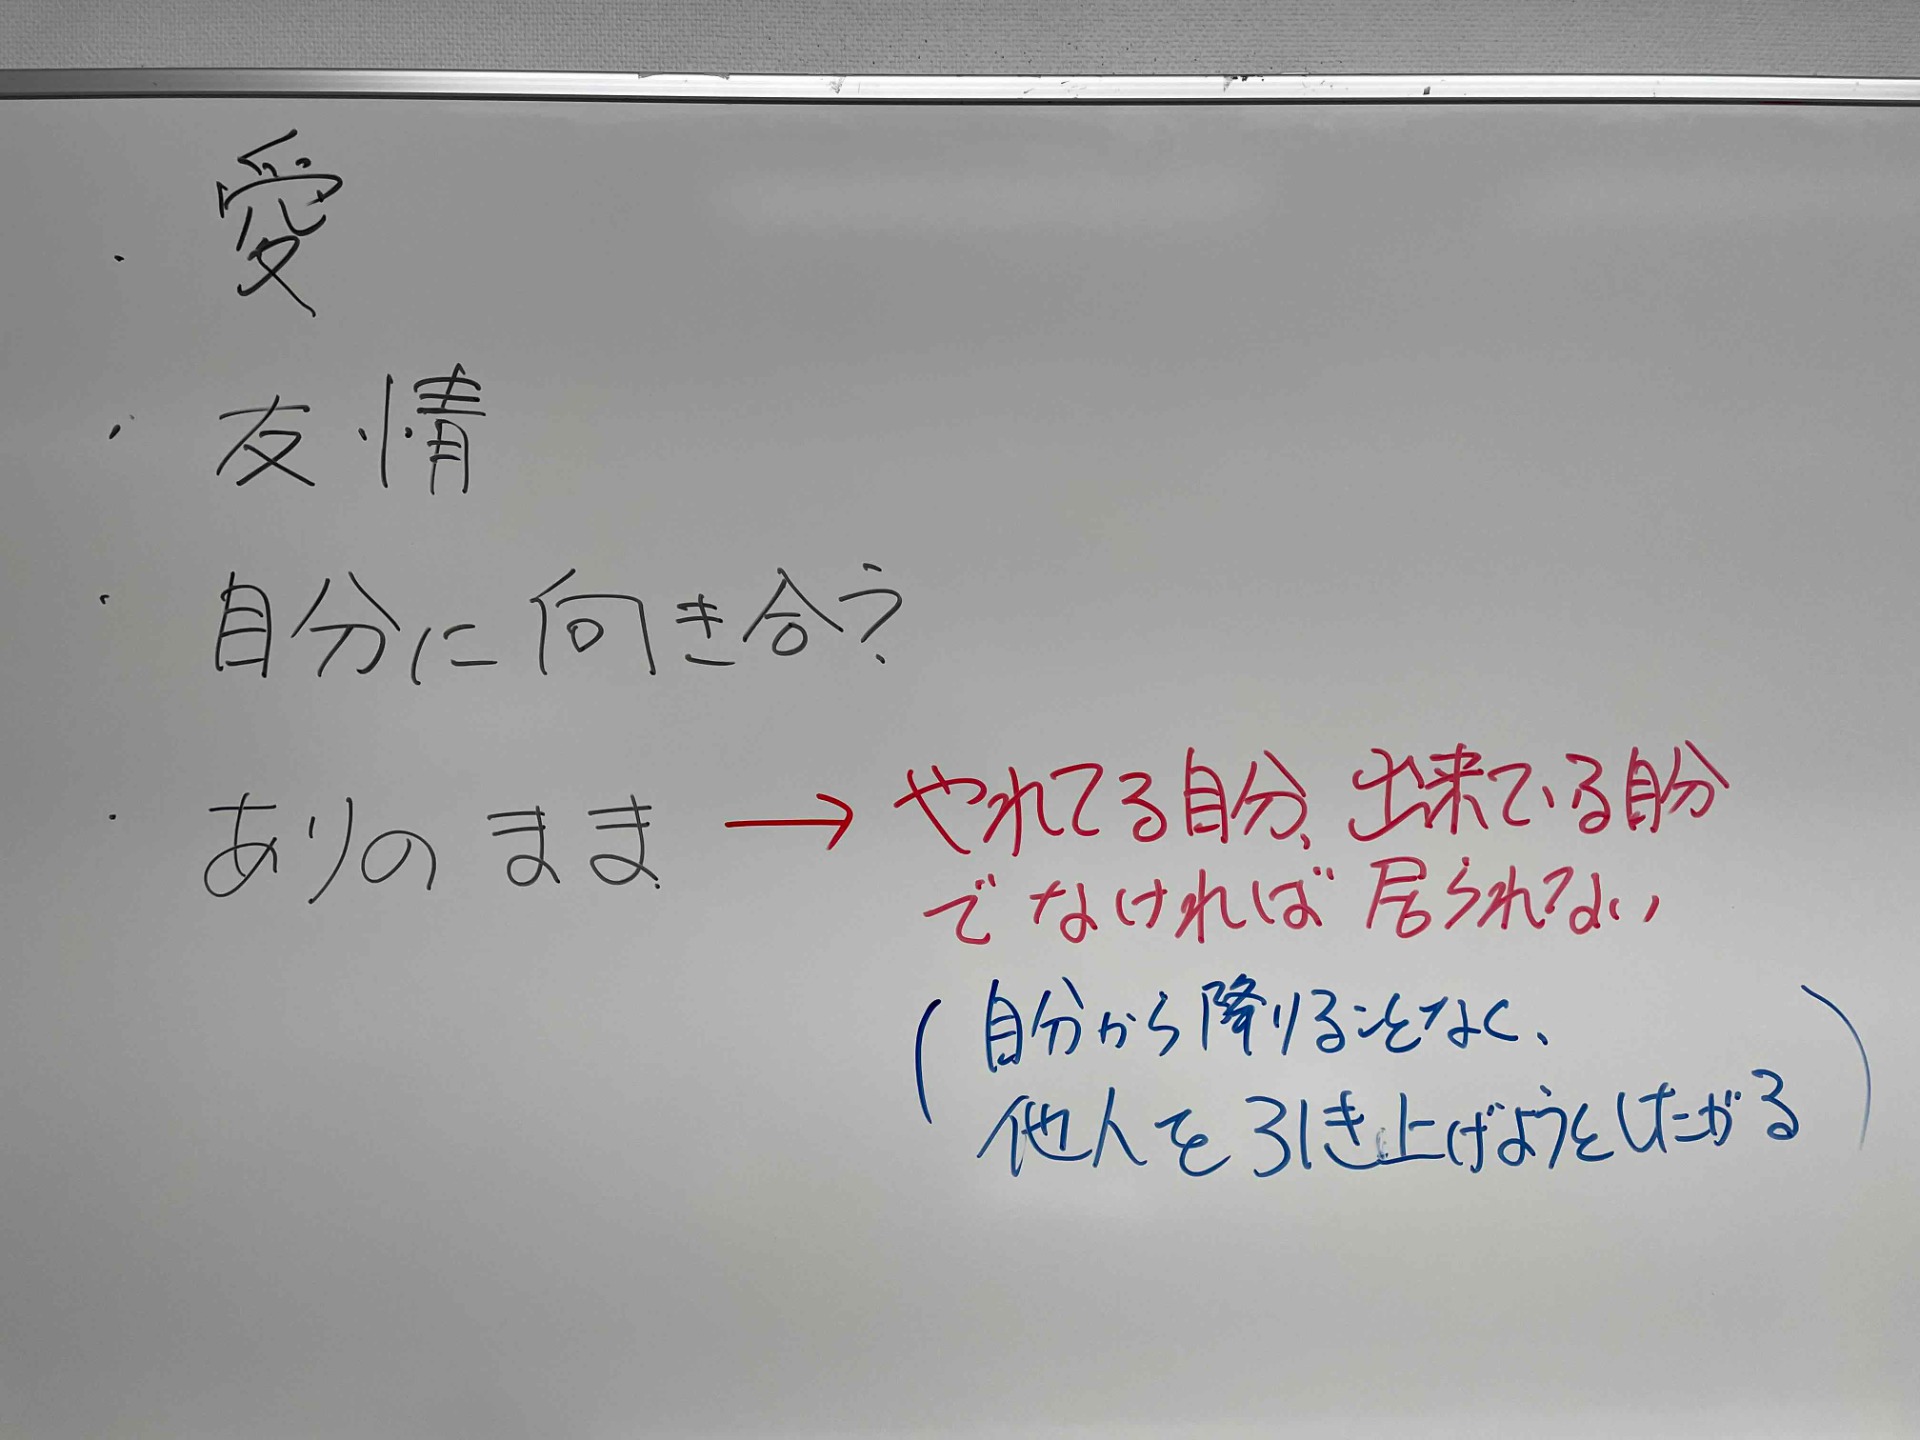 ・愛
・友情
・自分に向き合う?
・ありのまま → やれてる自分、出来ている自分
でなければ居られない
(自分から降りることなく、
他人を引き上げようとしたがる)